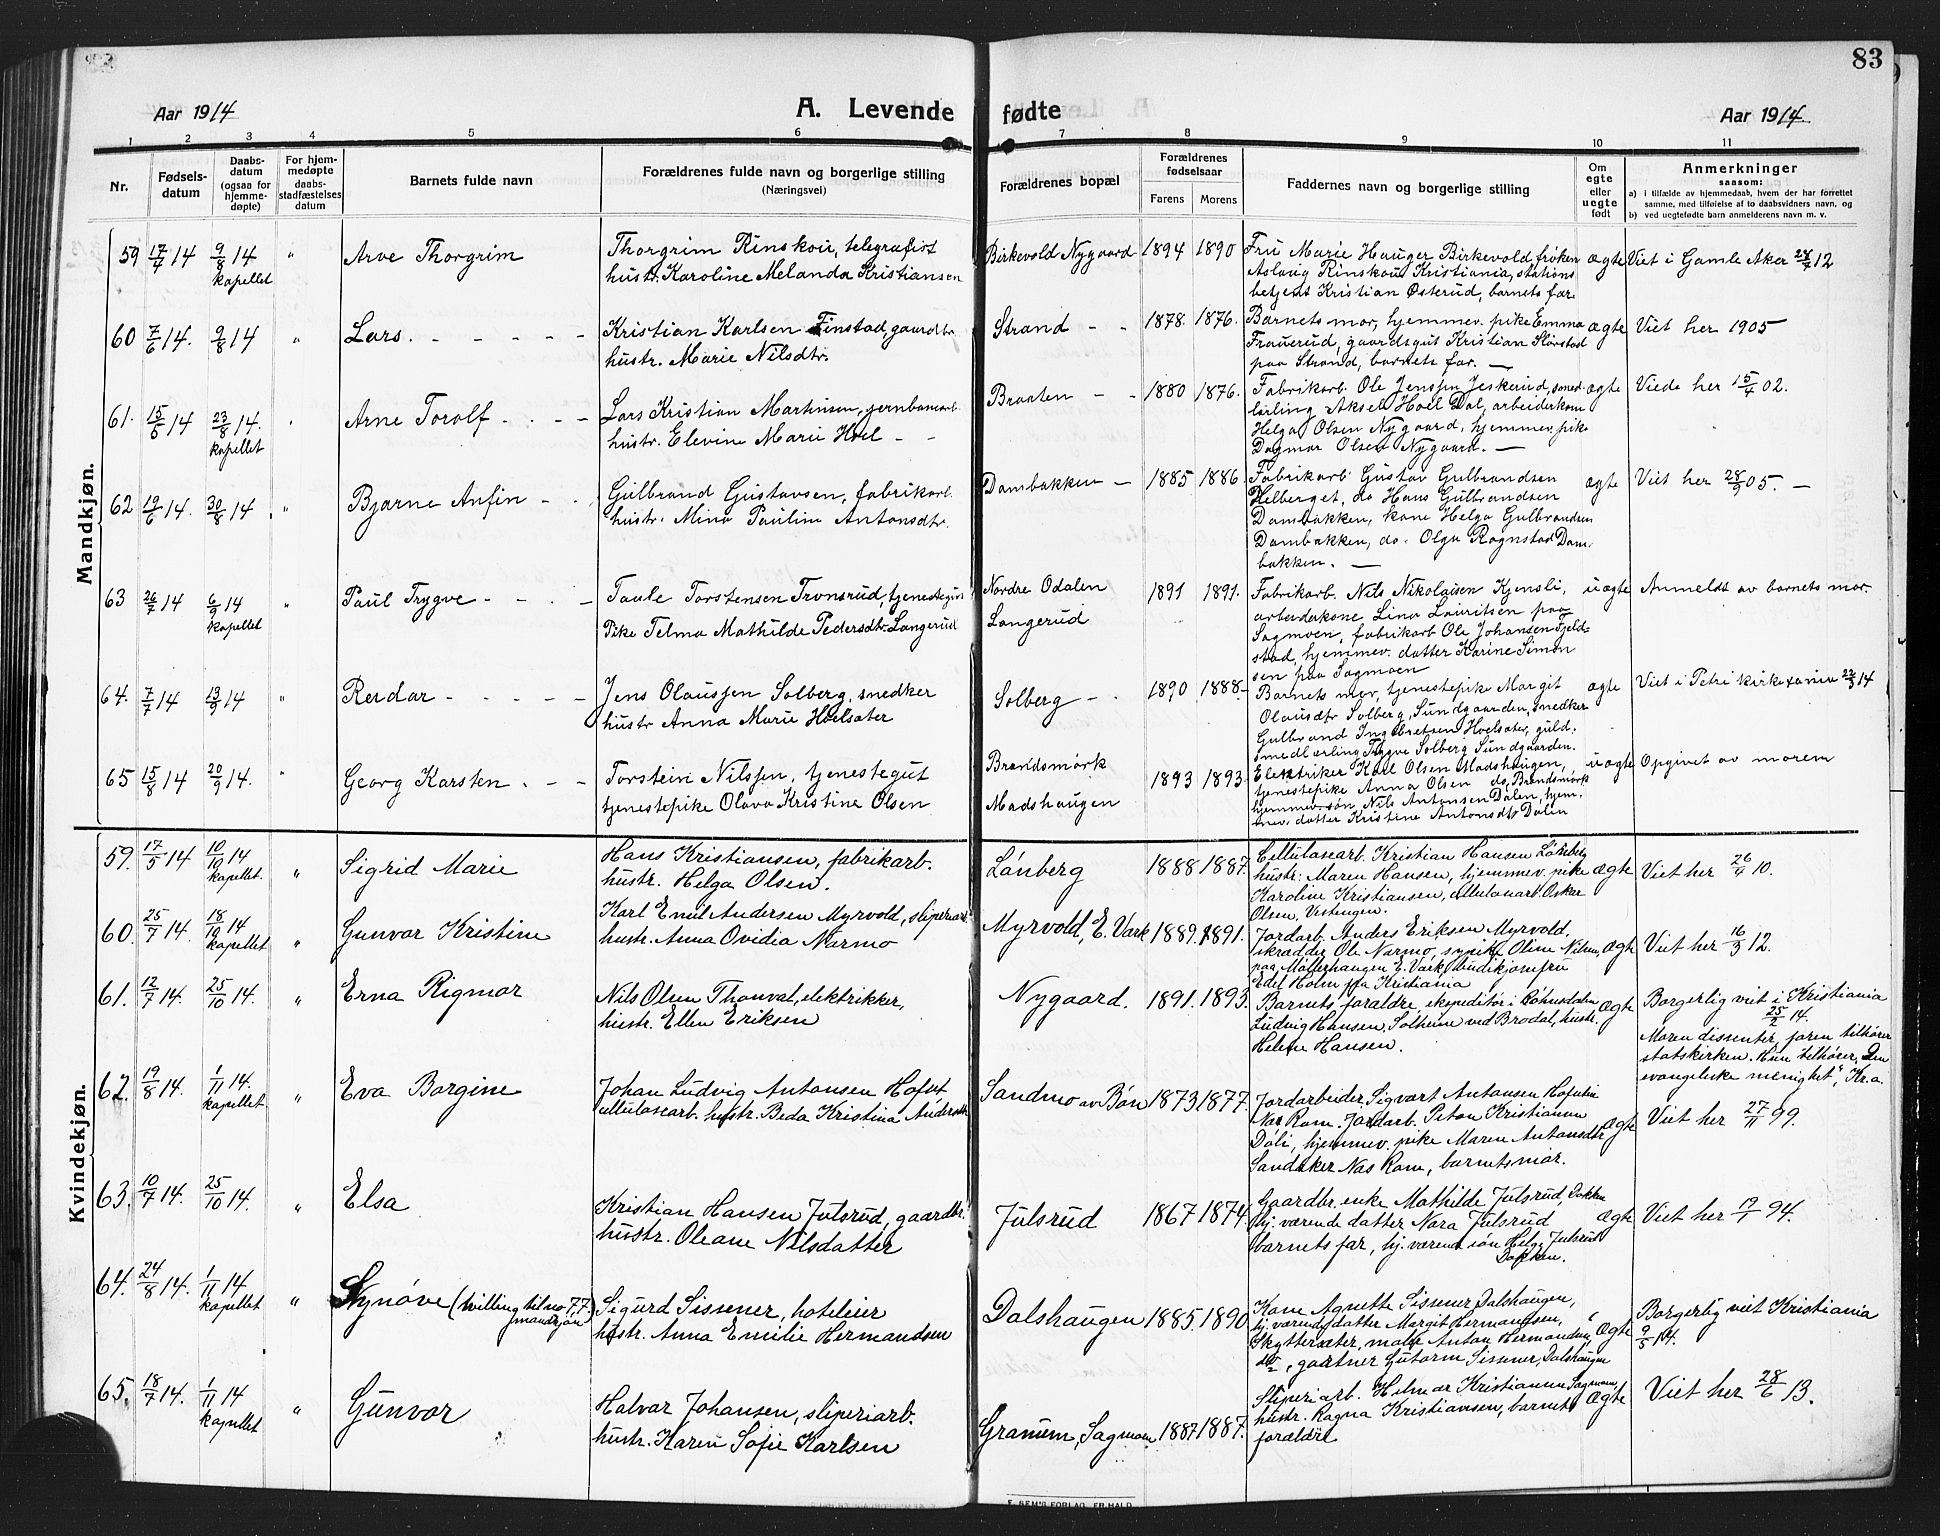 83
Aar 1914
A. Levende fødte
Aar 1914
1 2 3 4 5 6 7 8 9 10 11
Nr.
Fødsels-
datum
Daabs-
datum
(ogsaa for
hjemme-
døpte)
For hjem-
medøpte
daabs-
stadfæstelses
datum
Barnets fulde navn
Forældrenes fulde navn og borgerlige stilling
(Næringsvei)
Forældrenes bopæl
Forældrenes
fødselsaar
Farens Morens
Faddernes navn og borgerlige stilling
Om
egte
eller
uegte
født
Anmerkninger
saasom:
a) i tilfælde av hjemmedaab, hvem der har forrettet
samme, med tilføielse af to daabsvidners navn, og
b) ved uegtefødte barn anmelderens navn m. v.
Mandkjøn.
59 17/4 14 9/8 14 kapellet " Arve Thorgrim
Thorgrim Rinskou, telegrafist
hustr. Karoline Melanda Kristiansen
Birkevold Nygaard 1894 1890
Fru Marie Hauger Birkevold frøken
Aslaug Rinskou Kristiania, stations
betjent Kristian Østerud, barnets far
ægte Viet i Gamle Aker 12
60 7/6 14. 9/8 14 " Lars.
Kristian Karlsen Finstad, gaardbr.
hustr. Marie Nilsdtr.
Strand 1878. 1876.
Barnets mor, hjemmev. pike Emma
gaardsgut Kristian
paa Strand, barnets far. —
ægte Viet her 1905
61. 15/6 14 23/8 14. kapellet Arne Torolf
Lars Kristian Martinsen, jernbanearb.
hustr. Elevine Marie Hoel
Braaten 1880 1876.
Fabrikarb. Ole Jenssen Jeskerud, smed-
lærling Aksel Hoel Dal, arbeiderkone
Helga Olsen Nygaard, hjemmev. pike
Dagmar Olsen Nygaard. —
ægte Viede her 15/4 02.
62 19/6 14. 30/8 14. " Bjarne Anfin
Gulbrand Gustavsen, fabrikarb.
hustr. Mina Pauline Antonsdtr.
Dambakken 1885 1886
Fabrikarb. Gustav Gulbrandsen
Helberget, do Hans Gulbrandsen
Dambakken, kone Helga Gulbrandsen
Dambakken, do. Olga Rognstad Dam-
bakken. —
ægte Viet her 28/9 05. —
63 26/7 14 6/9 14 kapellet " Paul Trygve
Taule Torstensen Tronsrud, tjenestegut
Pike Telma Mathilde Pedersdtr. Langerud
Nordre Odalen
Langerud
1891 1891.
Fabrikarb. Nils Nikolaisen Kjensli,
arbeiderkone Lina Lauritsen paa
Sagmoen, fabrikarb Ole Johansen Fjeld-
stad, hjemmev. datter Karine Simon
sen paa Sagmoen
uægte Anmeldt av barnets mor.
64. 7/7 14 13/9 14 " Reidar
Jens Olaussen Solberg, snedker
hustr Anna Marie Hoelsæter
Solberg 1890 1888
Barnets mor, tjenestepike Margit
Olausdtr Solberg, Sundgaarden, snedker
Gulbrand Ingebretsen Hoelsæter, guld-
smedlærling Trygve Solberg Sundgaarden.
ægte Viet i Petri kirke 14
65 15/8 14 20/9 14. " Georg Karsten
Torstein Nilssen, tjenestegut
tjenestepike Olava Kristine Olsen
Brandsmork
Madshaugen
1893 1893
Elektriker Karl Olsen Madshaugen,
tjenestepike Anna Olsen do, Brandsmork
hjemmev. søn, Nils Antonsen Dalen, hjem-
mev. datter Kristine Antonsdtr Dalen
uægte Opgivet av moren
Kvindekjøn.
59. 17/5 14 10/10 14 kapellet. " Sigrid Marie
Hans Kristiansen, fabrikarb.
hustr. Helga Olsen.
Lönberg 1888 1887.
Cellulosearb. Kristian Hansen Lönberg
hustr. Maren Hansen, hjemmev. pike
Karoline Kristiansen, cellulosarb Oskar
Olsen, Vestengen.
ægte Viet her 26/4 10.
60. 25/7 14. 18/10 14 kapellet " Gunvor Kristine
Karl Emil Andersen Myrvold, sliperiarb
hustr. Anna Ovidia Narmo
Myrvold, E. Værk 1889. 1891.
Jordarb. Anders Eriksen Myrvold,
skrædder Ole Narmo, sypike Oline Nilsen,
paa Møllerhaugen E. Værk, budikjomfru
Edel Holm fra Kristiania
ægte Viet her 16/3 12.
61. 12/7 14. 25/10 14. " Erna Rigmor
Nils Olsen Thorval, elektrikker,
hustr. Ellen Eriksen
Nygaard. 1891. 1893.
Barnets forældre, ekspeditør i Bøhnsdalen
Ludvig Hansen, Solheim ved Brodal, hustr.
Helene Hansen.
ægte Borgerlig viet i Kristiania
25/2 14.
Moren dissenter, faren tilhører
statskirken. Hun tilhører „Den
evangeliske menighet", Kr.a.
62. 19/8 14. 1/11 14. kapellet. " Eva Borgine
Johan Ludvig Antonsen
cellulosearb. hustr. Beda Kristina Andersdtr
Sandmo av Bøn 1873 1877.
Jordarbeider Sigvart Antonsen
Næs Rom. Jordarb. Peton Kristiansen
Döli, hjemmev. pike Maren Antonsdtr
Sandaker Næs Rom., barnets mor.
ægte Viet her 27/11 99.
63. 10/7 14. 25/10 14. " Elsa
Kristian Hansen Julsrud, gaardbr.
hustr. Oleane Nilsdatter
Julsrud 1867 1874
Gaardbr. enke Mathilde Julsrud, Dokken
hj. værende datter Nora Julsrud
barnets far, hj. værende søn Helge Julsrud
Dokken.
ægte Viet her 94.
64. 24/8 14. 1/11 14 kapellet " Synøve (tvilling til no 77
mandkjön)
Sigurd Sissener, hoteleier
hustr. Anna Emilie Hermandsen
Dalshaugen 1885. 1890
Kone Agnette Sissener, Dalshaugen,
hj. værende datter Margit Hermandsen,
Skyttersæter, maler Anton Hermandsen,
do, gartner Gutorm Sissener, Dalshaugen
ægte Borgerlig viet Kristiania
9/5 14.
65. 18/7 14. 1/11 14 kapellet " Gunvor
Halvar Johansen, sliperiarb.
hustr. Karen Sofie Karlsen
Granum, Sagmoen 1887 1887.
Sliperiarb. Helmer Kristiansen Sagmoen,
hustr. Ragna Kristiansen, barnets
forældre
ægte Viet her 28/6 13.
E. SEM'S FORLAG, FR.HALD